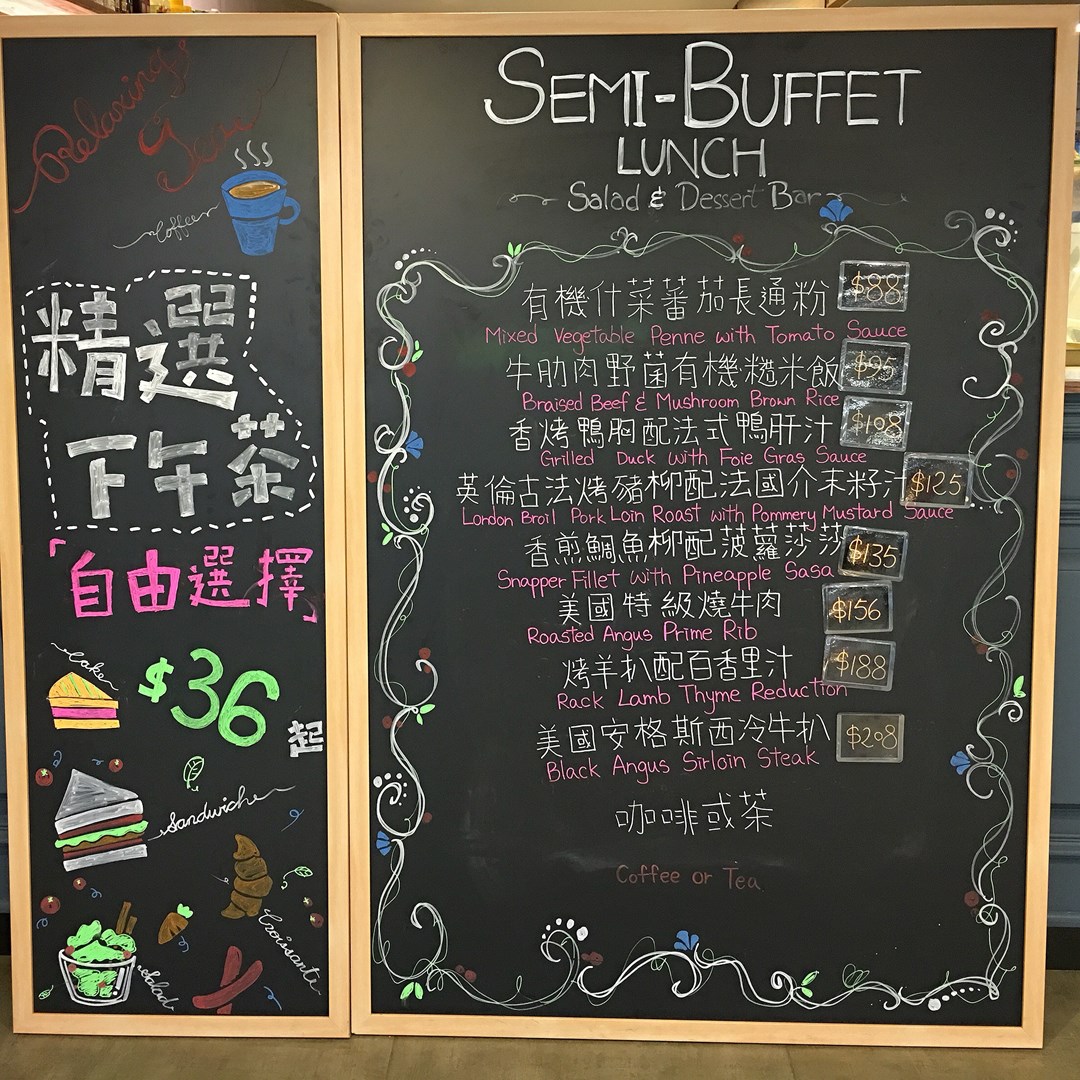 Relaxing
Tea
Coffee
精選
下午茶
「自由選擇」
Cake
$36
起
Sandwiche
Croissante
Salad
SEMI-BUFFET
LUNCH
Salad & Dessert Bar
有機什菜蕃茄長通粉 $88
Mixed Vegetable Penne with Tomato Sauce
牛肋肉野菌有機糙米飯 $95
Braised Beef & Mushroom Brown Rice
香烤鴨胸配法式鴨肝汁 $108
Grilled Duck with Foie Gras Sauce
英倫古法烤豬柳配法國介末籽汁 $125
London Broil Pork Loin Roast with Pommery Mustard Sauce
香煎鯛魚柳配菠蘿莎莎 $135
Snapper Fillet with Pineapple Sasa
美國特級燒牛肉 $156
Roasted Angus Prime Rib
烤羊扒配百香里汁 $188
Rack Lamb Thyme Reduction
美國安格斯西冷牛扒 $208
Black Angus Sirloin Steak
咖啡或茶
Coffee or Tea